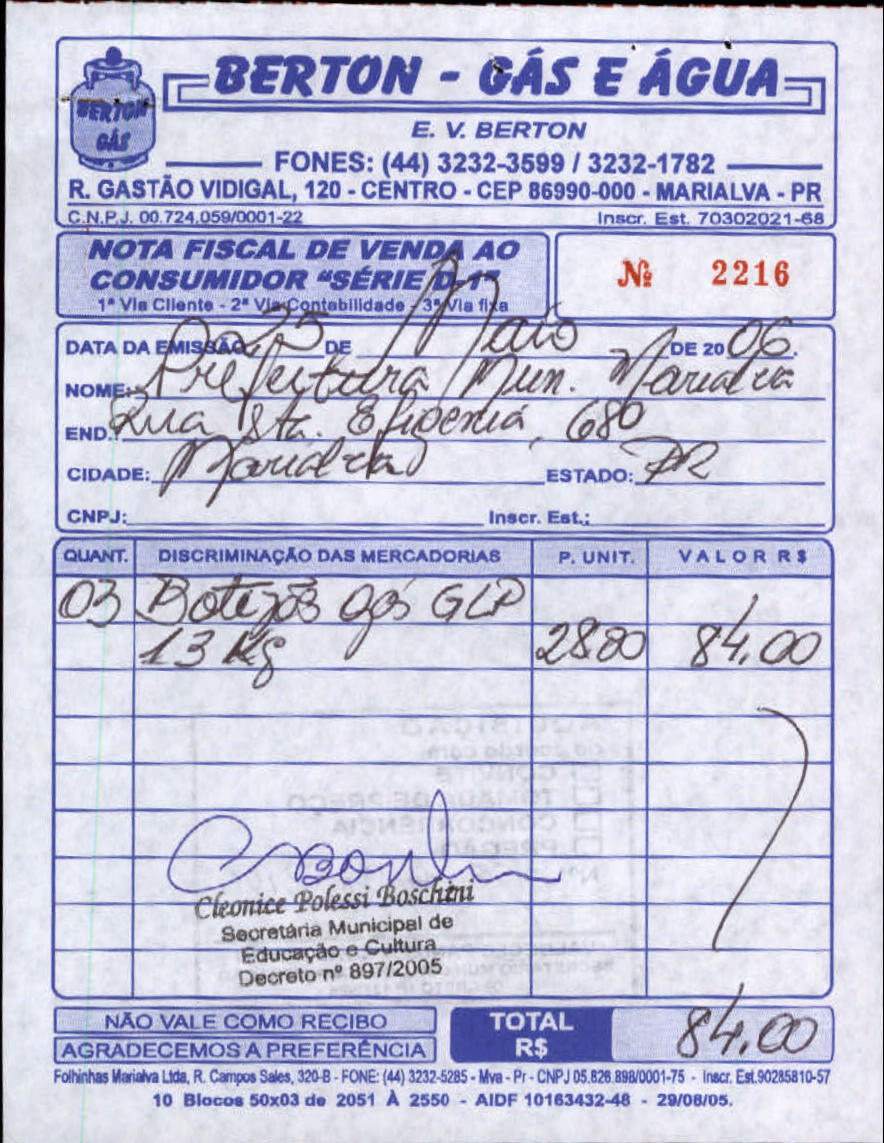 BERTON - GÁS E ÁGUA
BERTON
GÁS
E. V. BERTON
FONES: (44) 3232-3599 / 3232-1782
R. GASTÃO VIDIGAL, 120 - CENTRO - CEP 86990-000 - MARIALVA - PR
C.N.P.J. 00.724.059/0001-22 Inscr. Est. 70302021-68
NOTA FISCAL DE VENDA AO
CONSUMIDOR "SÉRIE D-1"
1ª Via Cliente - 2ª Via Contabilidade - 3ª Via fixa
Nº 2216
DATA DA EMISSÃO 25 DE Maio DE 2006.
NOME: Prefeitura Mun. Marialva
END.: Rua Sta. Efigenia, 680
CIDADE: Marialva ESTADO: PR
CNPJ: Inscr. Est.:
QUANT. DISCRIMINAÇÃO DAS MERCADORIAS P. UNIT. VALOR R$
03 Botijãs gás GLP
13 Kg 28.00 84,00
AQUISIÇÃO
de acordo com
CONVITE
TOMADA DE PREÇO
CONCORRÊNCIA
PREGÃO
Nº
Cleonice Polessi Boschini
Secretária Municipal de
Educação e Cultura
Decreto nº 897/2005
NÃO VALE COMO RECIBO
AGRADECEMOS A PREFERÊNCIA
TOTAL R$ 84,00
Folhinhas Marialva Ltda, R. Campos Sales, 320-B - FONE: (44) 3232-5285 - Mva - Pr - CNPJ 05.826.898/0001-75 - Inscr. Est.90285810-57
10 Blocos 50x03 de 2051 À 2550 - AIDF 10163432-48 - 29/08/05.